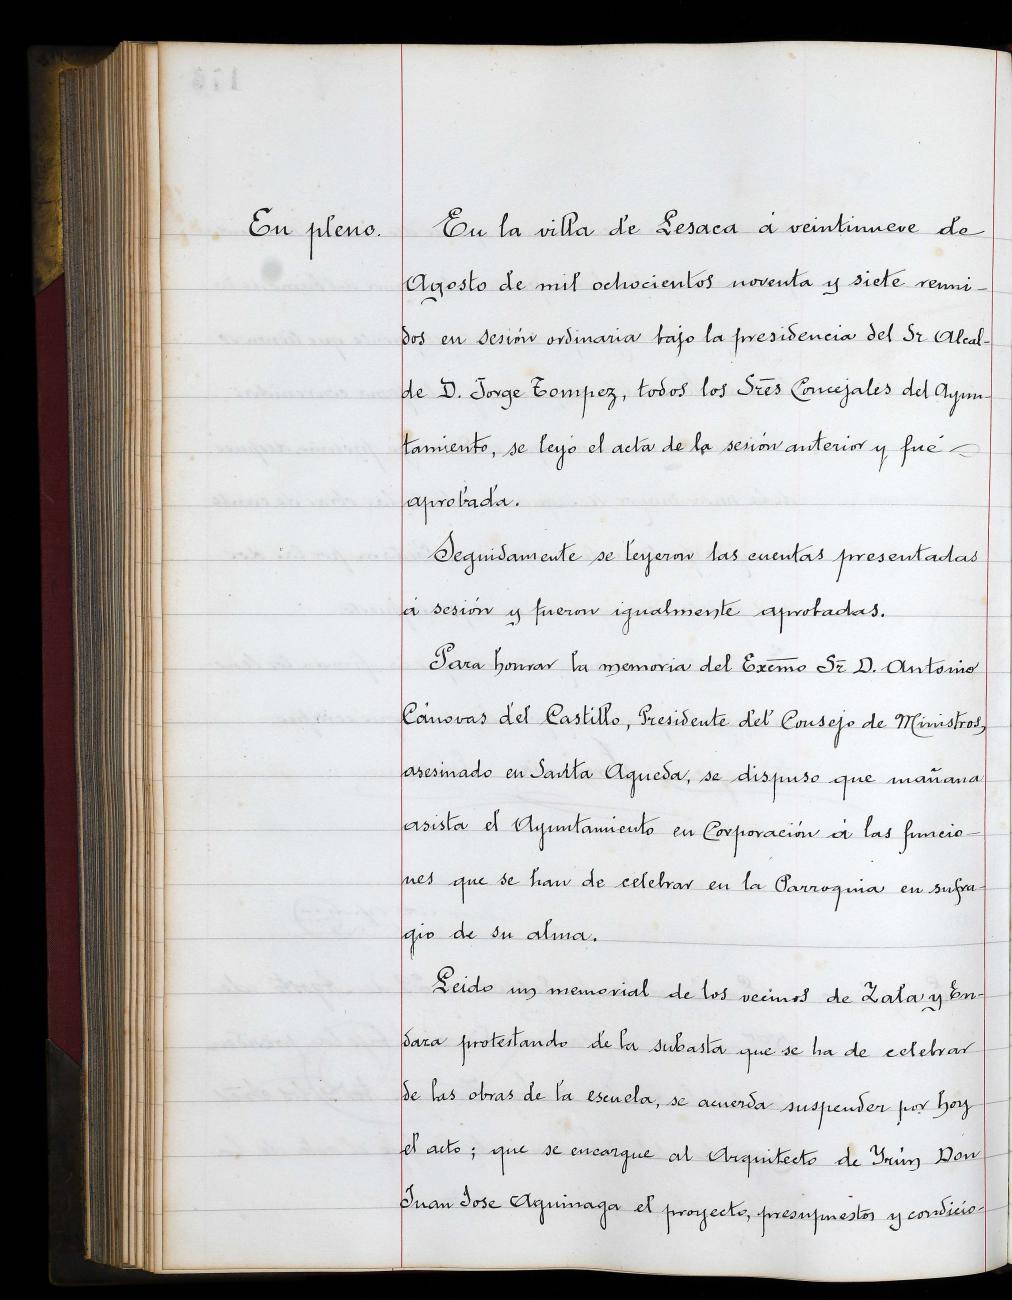 En pleno.
En la villa de Lesaca á veintinueve de
Agosto de mil ochocientos noventa y siete reuni-
dos en sesión ordinaria bajo la presidencia del Sr Alcal-
de D. Jorge Tompez, todos los Sres Concejales del Ayun-
tamiento, se leyó el acta de la sesión anterior y fué
aprobada.
Seguidamente se leyeron las cuentas presentadas
á sesión y fueron igualmente aprobadas.
Para honrar la memoria del Excmo Sr D. Antonio
Cánovas del Castillo, Presidente del Consejo de Ministros,
asesinado en Santa Agueda, se dispuso que mañana
asista el Ayuntamiento en Corporación á las funcio-
nes que se han de celebrar en la Parroquia en sufra-
gio de su alma.
Leido un memorial de los vecinos de Zala y En-
dara protestando de la subasta que se ha de celebrar
de las obras de la escuela, se acuerda suspender por hoy
el acto; que se encargue al Arquitecto de Yrún Don
Juan Jose Aguinaga el proyecto, presupuestos y condicio-